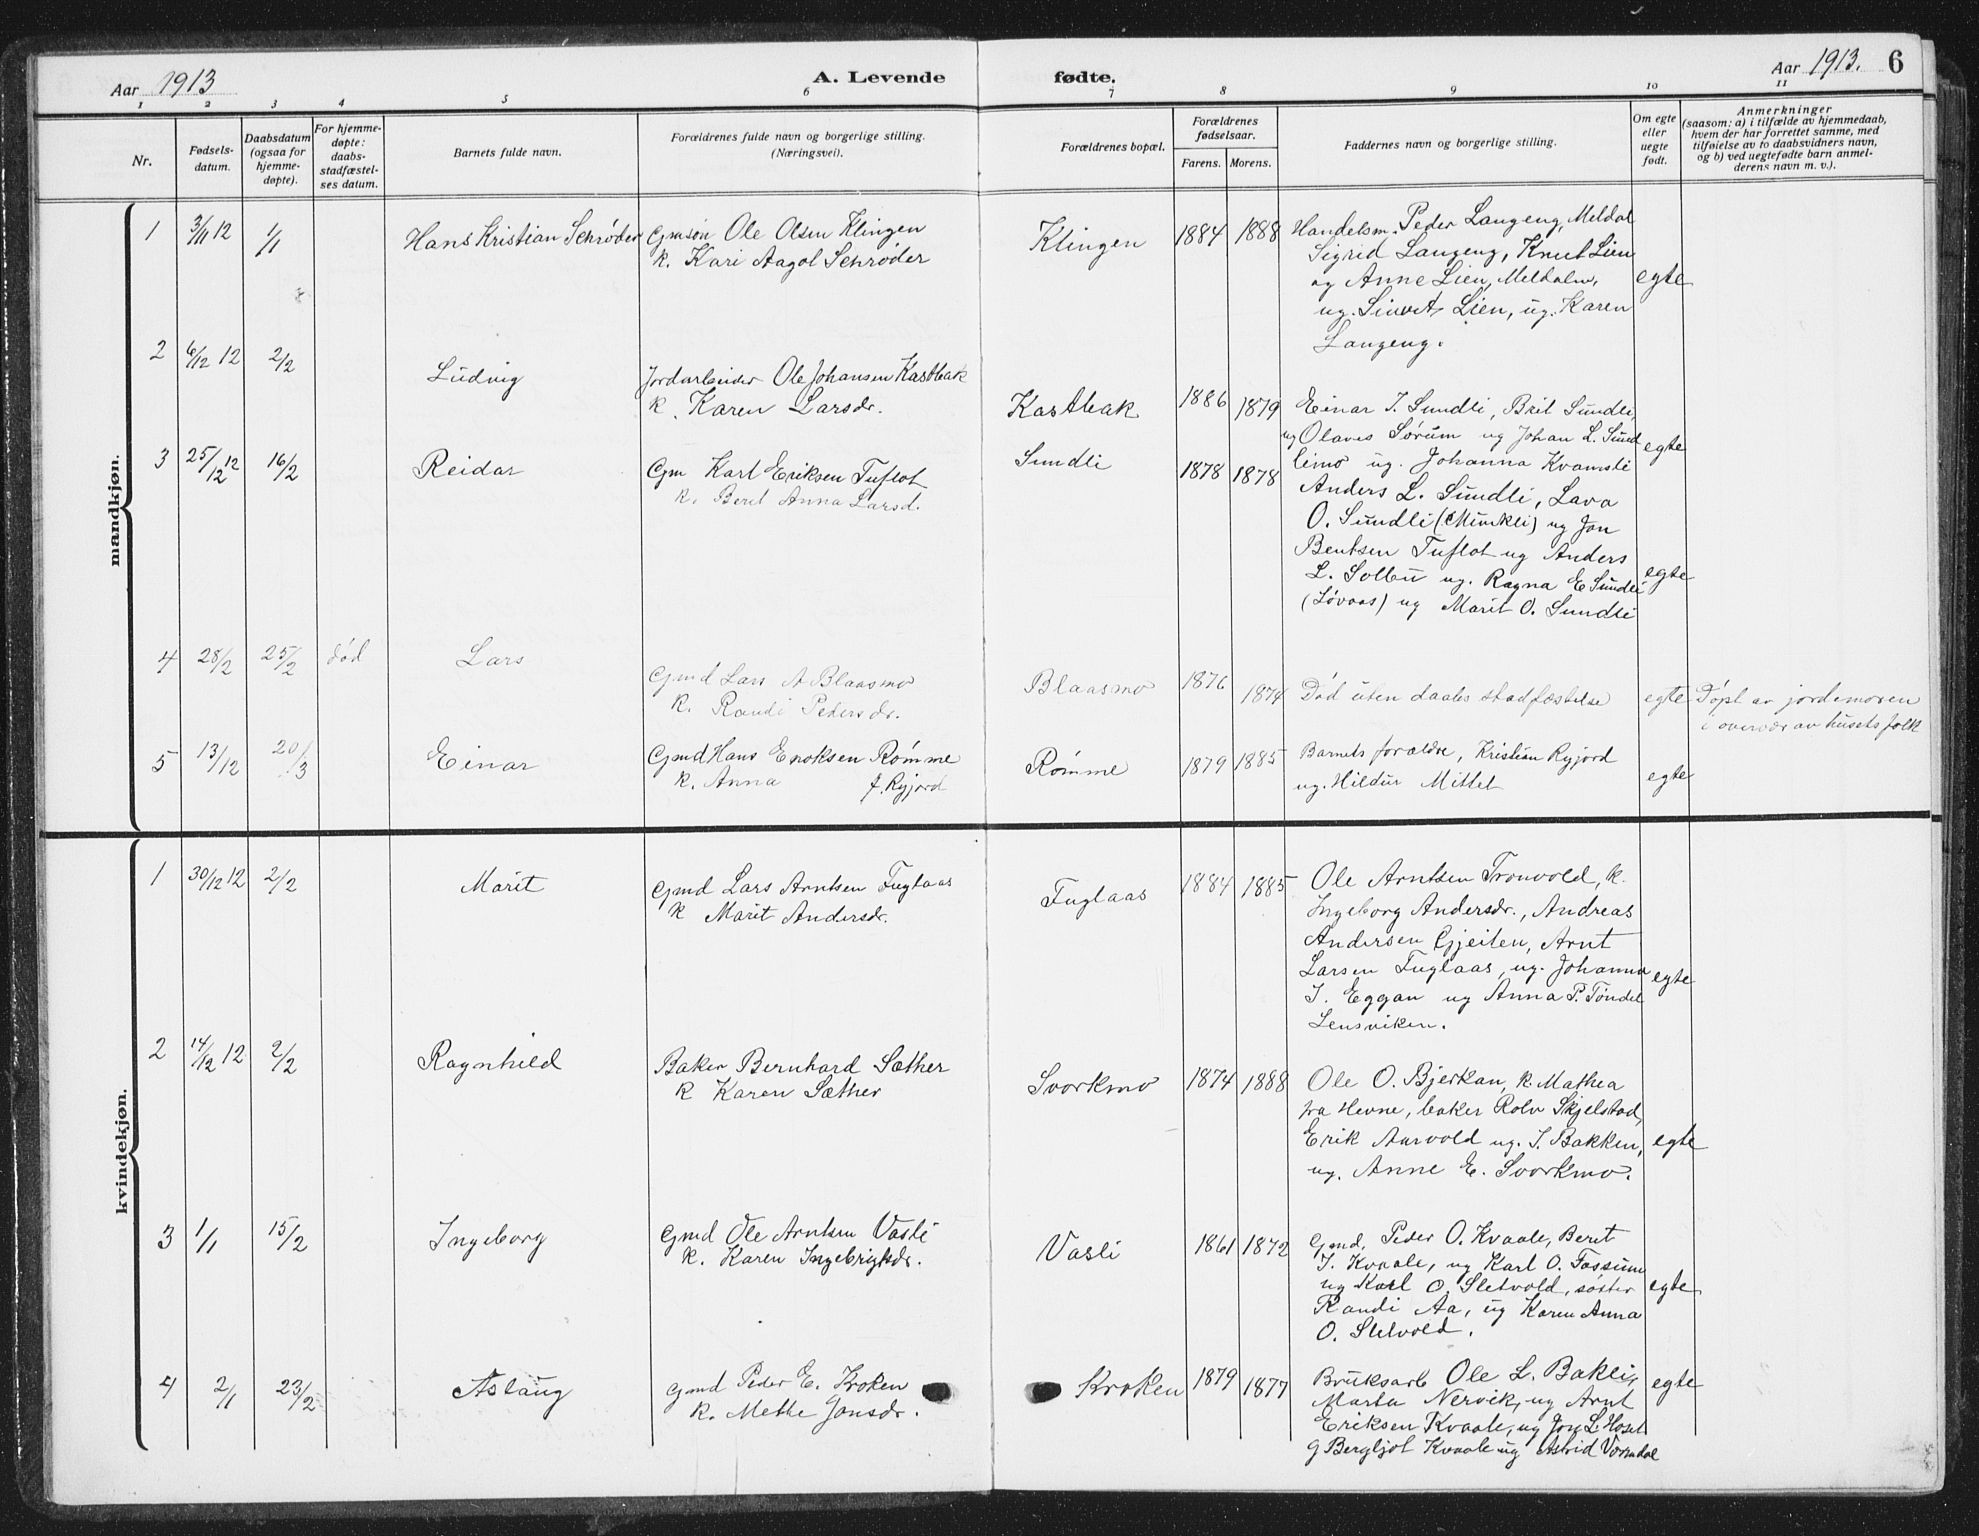 Aar 1913
A. Levende
fødte.
Aar 1913. 6
1 2 3 4 5 6 7 8 9 10 11
Nr.
Fødsels-
datum.
Daabsdatum
(ogsaa for
hjemme-
døpte).
For hjemme-
døpte:
daabs-
stadfæstel-
ses datum.
Barnets fulde navn.
Forældrenes fulde navn og borgerlige stilling.
(Næringsvei).
Forældrenes bopæl.
Forældrenes
fødselsaar.
Farens. Morens.
Faddernes navn og borgerlige stilling.
Om egte
eller
uegte
født.
Anmerkninger
(saasom: a) i tilfælde av hjemmedaab,
hvem der har forrettet samme, med
tilføielse av to daabsvidners navn,
og b) ved uegtefødte barn anmel-
derens navn m. v.).
mandkjøn.
1 3/11 12 1/1 Hans Kristian Schrøder
Gmsøn Ole Olsen Klingen
k. Kari Aagot Schrøder
Klingen 1884 1888
Handelsm. Peder Langeng, Meldal
Sigrid Langeng, Knut Lien
og Anne Lien, Meldalen,
ug. Lien, ug. Karen
Langeng.
egte
2 6/12 12 2/2 Ludvig
Jordarbeider Ole Johansen Kastbak
k. Karen Larsdr.
Kastbak 1886 1879
Einar J. Sundli, Brit Sundli,
ug Olaves Sørum ug Johan L. Sund
limo ug. Johanna Kvamsli
egte
3 25/12 12 16/2 Reidar
Gm Karl Eriksen Tuflot
k. Beret Anna Larsd.
Sundli 1878 1878
Anders L. Sundli, Lava
O. Sundli (Munkli) ug Jon
Bentsen Tuflot ug Anders
L. Solbu ug. Ragna E Sundli
(Løvaas) ug Marit O. Sundli
egte
4 28/2 25/2 død Lars
Gmd Lars A Blaasmo
k. Randi Pedersdr.
Blaasmo 1876 1874
Død uten daabs stadfæstelse
egte
Døpt av jordemoren
i overvær av husets folk
5 13/12 20/3 Einar
Gmd Hans Enoksen Rømme
k. Anna f. Ryjord
Rømme 1879 1885
Barnets forældre, Kristian Ryjord
ug. Hildur Mittet
egte
kvindekjøn.
1 30/12 12 2/2 Marit
Gmd Lars Arntsen Fuglaas
k Marit Andersdr.
Fuglaas 1884 1885
Ole Arntsen Tronvold, k.
Ingeborg Andersdr., Andreas
Andersen Gjeiten, Arnt
Larsen Fuglaas, ug. Johanna
J. Eggan ug Anna P. Tøndel
Lensviken.
egte
2 14/12 12 2/2 Ragnhild
Baker Bernhard Sæther
k Karen Sæther
Svorkmo 1874 1888
Ole O. Bjerkan, k. Mathea
fra Hevne, baker Rolv Skjelstad,
Erik Aarvold ug. J. Bakken,
ug. Anne E. Svorkmo.
egte
3 1/1 15/2 Ingeborg
Gmd Ole Arntsen Vasli
k. Karen Ingebrigtsdr.
Vasli 1861 1872
Gmd. Peder O. Kvaale, Beret
J. Kvaale, ug Karl O. Fossum
ug Karl O. Sletvold, søster
Randi Aa, ug Karen Anna
O. Sletvold.
egte
4 2/1 23/2 Aslaug
Gmd Peder E. Kroken
k. Methe Jonsdr.
Kroken 1879 1877
Bruksarb Ole L. Bakli,
Marta Nervik, ug Arnt
Eriksen Kvaale, ug Jon L Hoset
g Bergljot Kvaale ug Astrid Vormdal
egte